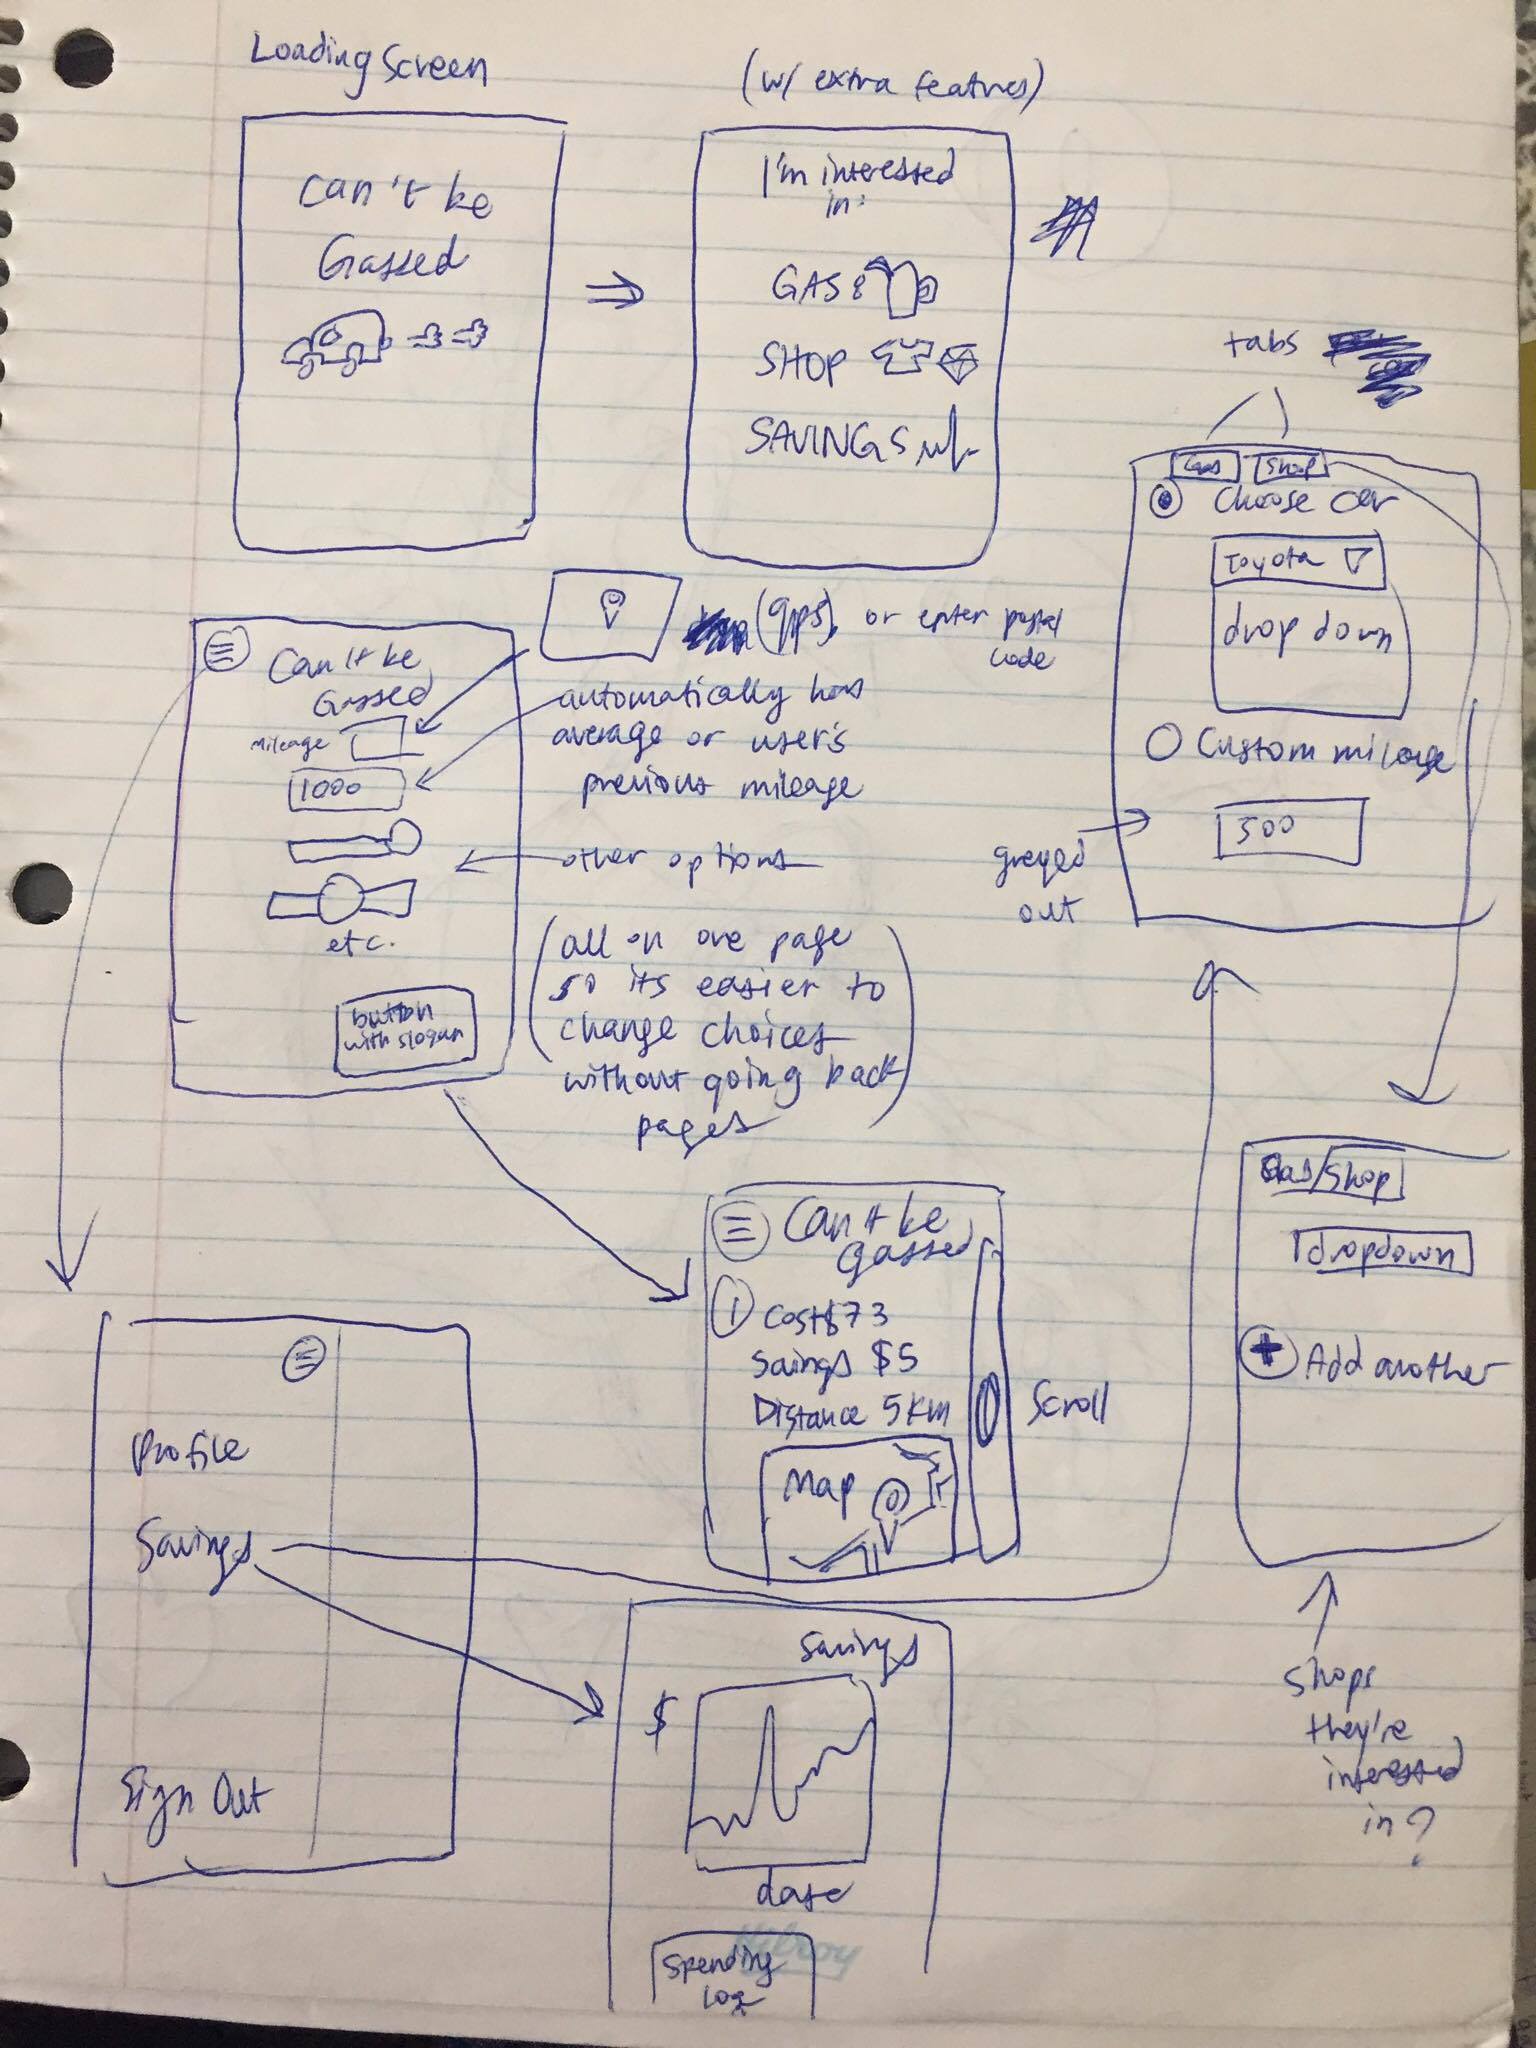 Loading Screen
(w/ extra features)
Can't be
Gassed
I'm interested
in:
GAS
SHOP
SAVINGS
tabs
Gas
Shop
Choose Car
Toyota
drop down
Custom mileage
500
greyed
out
(gps), or enter postal
code
Can't be
Gassed
mileage
1000
etc.
button
with slogan
automatically has
average or user's
previous mileage
other options
(all on one page
so its easier to
change choices
without going back
pages)
Can't be
gassed
1
Cost $73
Savings $5
Distance 5km
Map
Scroll
Gas/Shop
dropdown
+ Add another
Shops
they're
interested
in?
Profile
Savings
Sign Out
Savings
$
date
Spending
Log
Hilroy